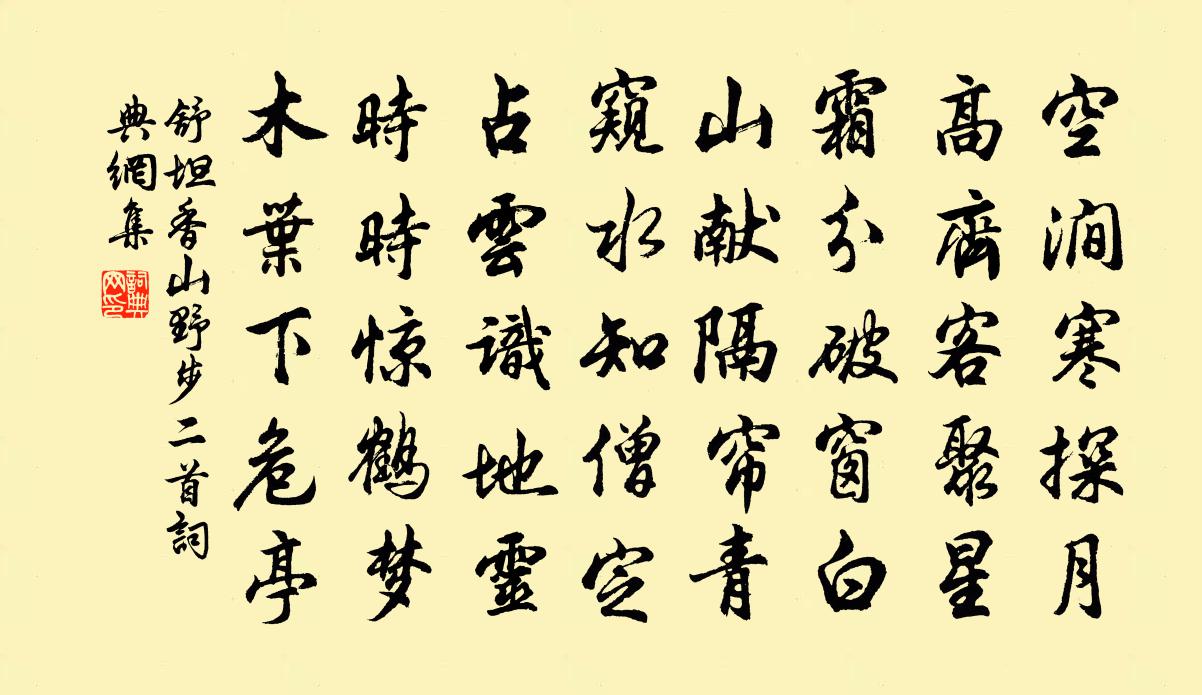 空澗寒探月
高齊客聚星
霜分破窗白
山献隔帘青
窺水知僧定
占雲識地靈
時時惊鶴梦
木葉下危亭
舒坦香山野步二首詞
典網集
詞典
网印